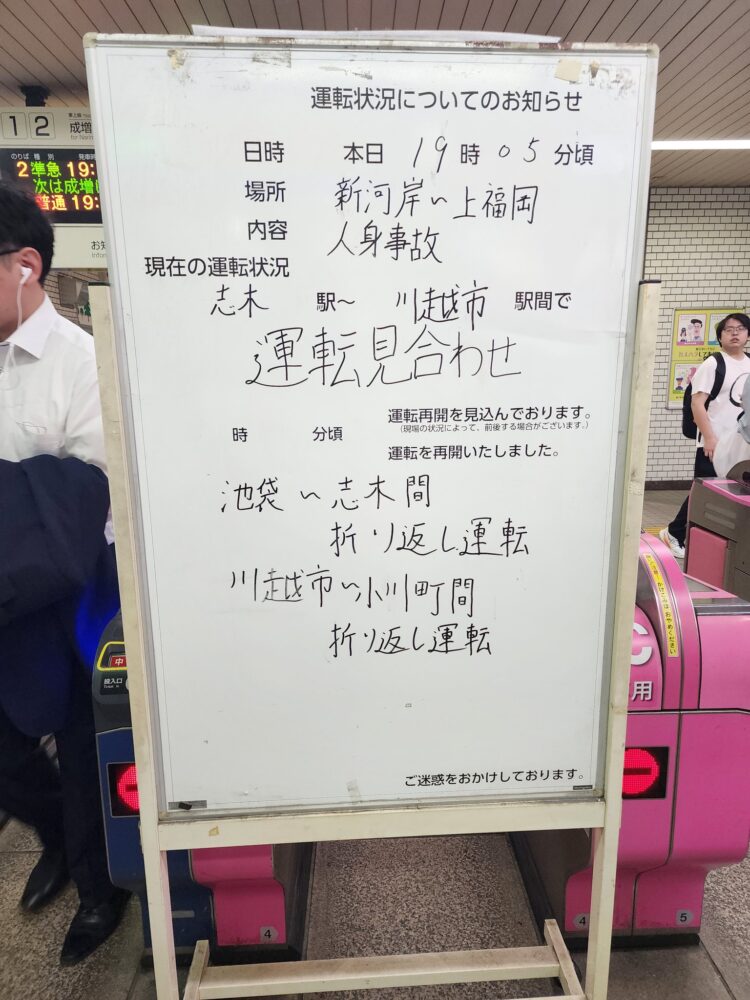 運転状況についてのお知らせ
日時 本日 19時05分頃
場所 新河岸〜上福岡
内容 人身事故
現在の運転状況
志木 駅〜 川越市 駅間で
運転見合わせ
時 分頃 運転再開を見込んでおります。
(現場の状況によって、前後する場合がございます。)
運転を再開いたしました。
池袋〜志木間
折り返し運転
川越市〜小川町間
折り返し運転
ご迷惑をおかけしております。
1 2
成増
のりば 種別 発車時
2 準急 19:
次は成増
普通 19:
お知
中
4
4
5
用